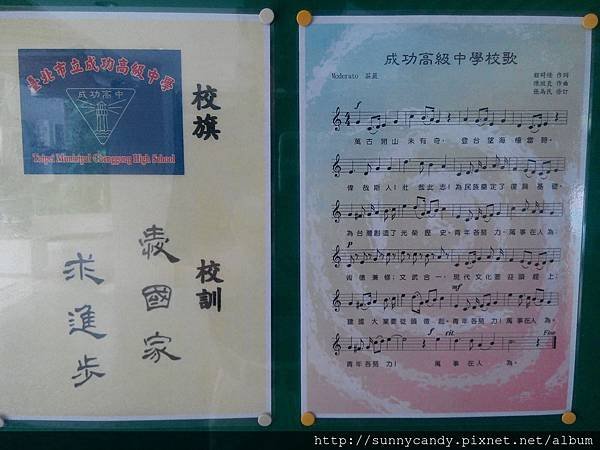 臺北市立成功高級中學
成功高中
Taipei Municipal Chenggong High School
校旗
校訓
愛國家
求進步
成功高級中學校歌
Moderato 莊嚴
作詞
作曲
張為民 修訂
f
萬古開山未有奇，登台望海極雲鵝。
偉哉斯人！壯哉此志！為民族奠定了復興基礎，
為台灣創造了光榮歷史。青年各努力，萬事在人為；
術德兼修；文武合一，現代文化要迎頭趕上；
mf
建國大業要從頭做起。青年各努力！萬事在人為。
f rit Fine
青年各努力！萬事在人為。
http://sunnycandy.pixnet.net/album